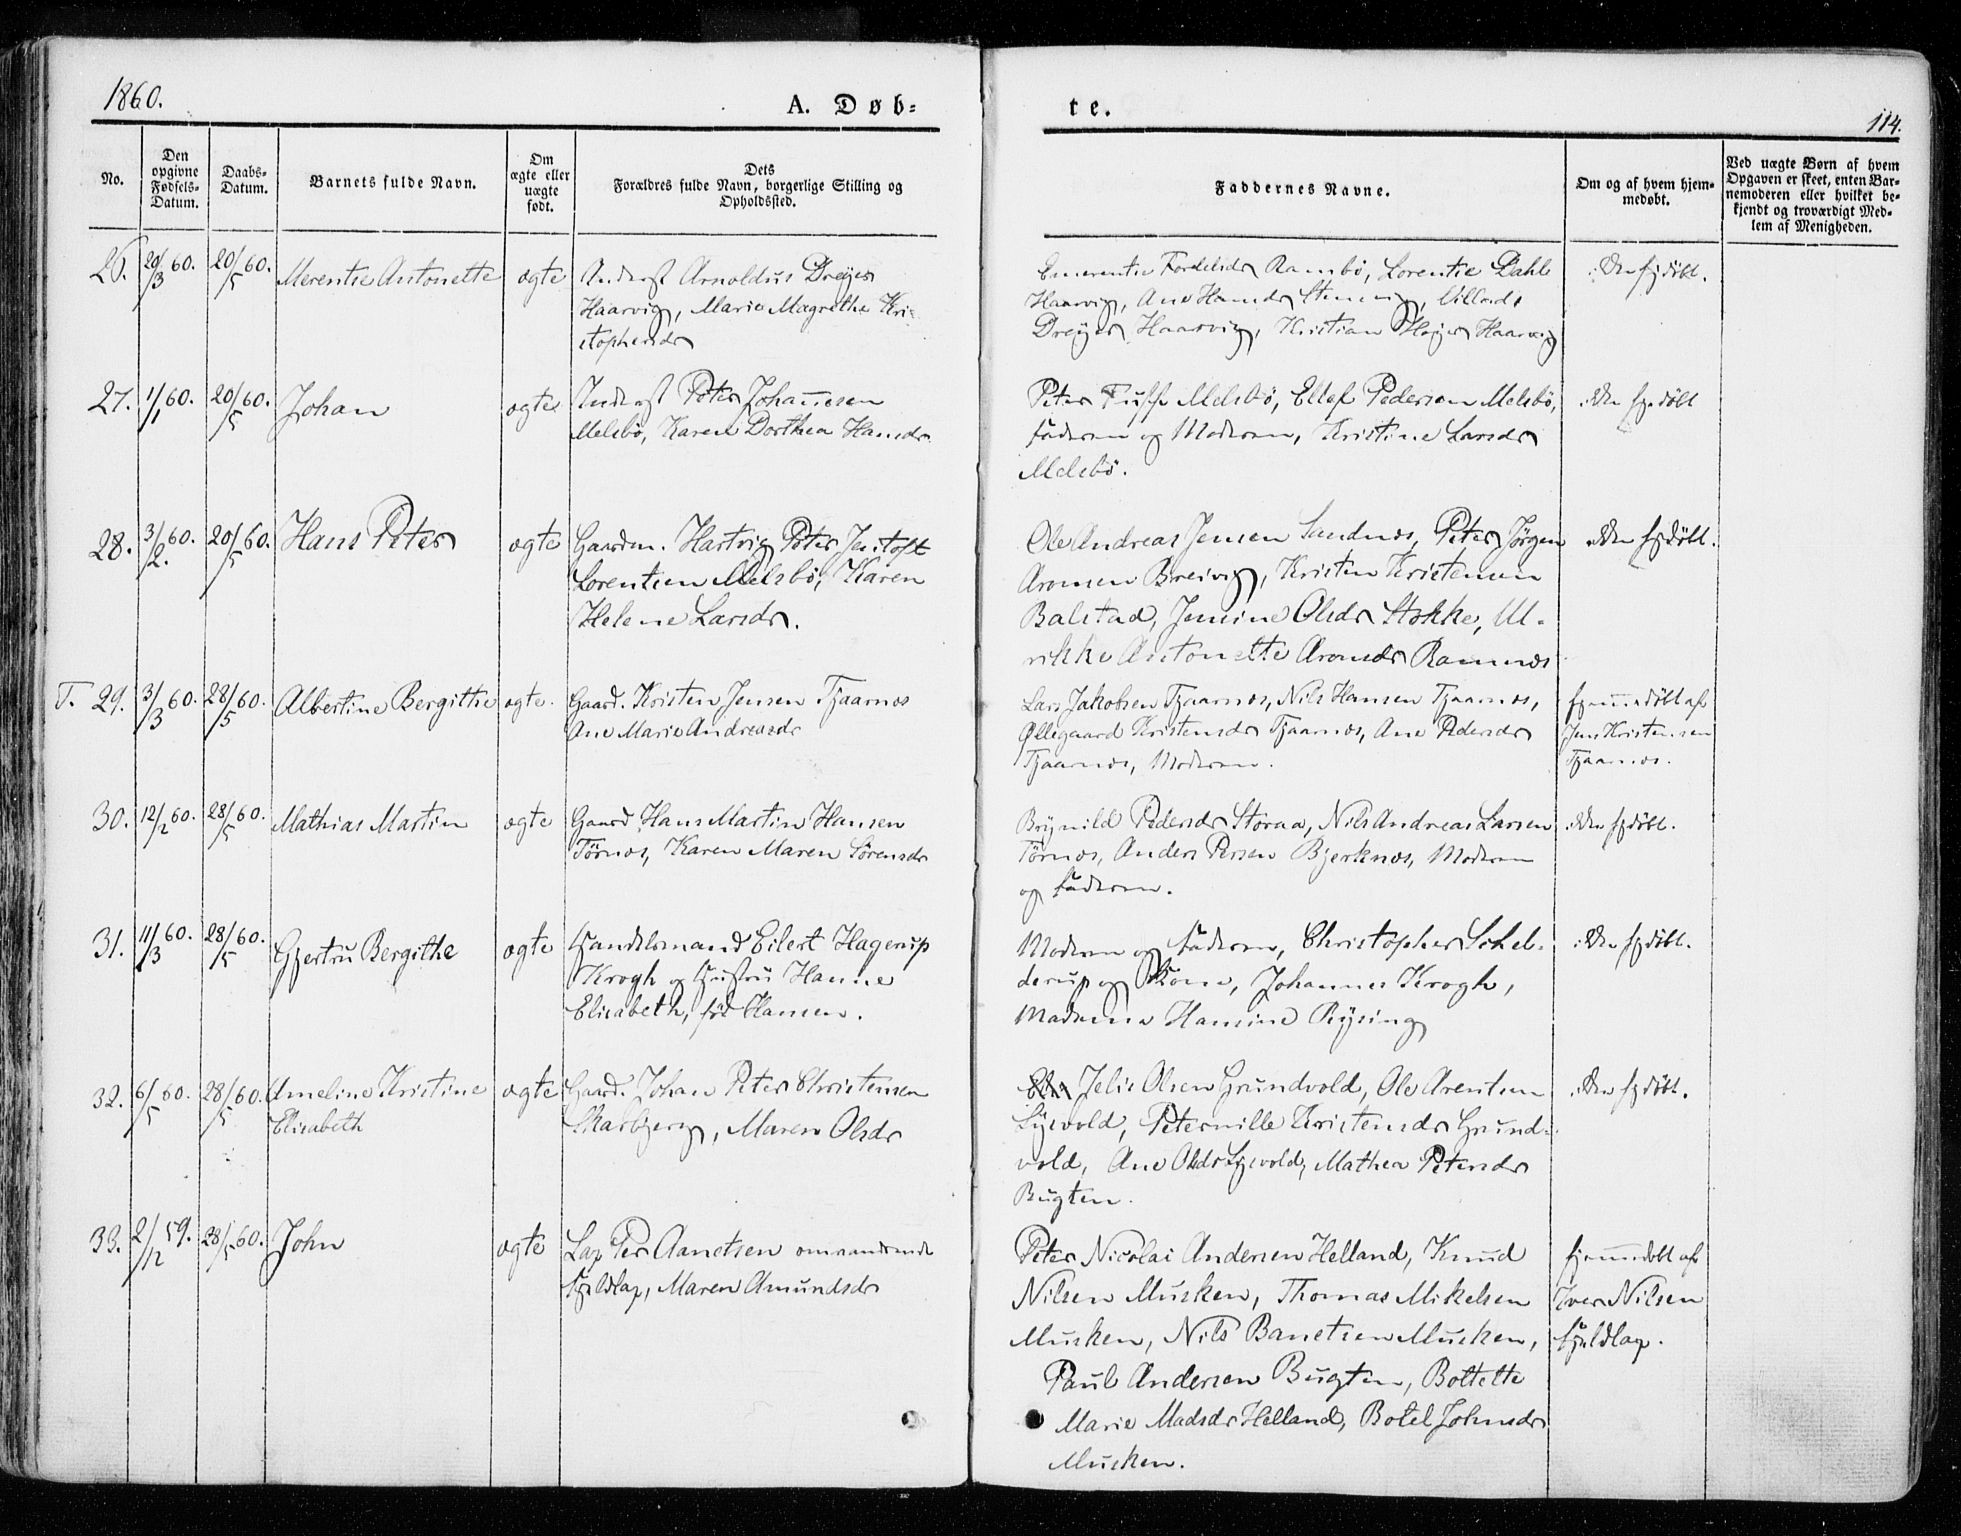 1860.
A. Døb-
te.
114.
No.
Den opgivne Fødsels-Datum.
Daabs-Datum.
Barnets fulde Navn.
Om ægte eller uægte født.
Dets Forældres fulde Navn, borgerlige Stilling og Opholdssted.
Faddernes Navne.
Om og af hvem hjem-medøbt.
Ved uægte Børn af hvem Opgaven er skeet, enten Bar-nemoderen eller hvilket be-kjendt og troværdigt Med-lem af Menigheden.
26. 20/3 60. 20/5 60. Merentse Antonette ægte
Inderst Arnoldus Dreyer
Haarvig, Marie Magrethe Kri-
stophersdr
Emerentse Rambø, Lorentse Dahl
Haarvig, Ane Hansdr
Dreyer Haarvig, Kristian Høyer Haarvig
ikke hjdøbt.
27. 1/1 60. 20/5 60. Johan ægte
Inderst Peter Johannesen
Melsbö, Karen Dorthea Hansdr.
Peter Fuff Melsbö, Ellef Pedersen Melsbö,
Faderen og Moderen, Kristine Larsdr
Melsbö.
ikke hjdöbt
28. 3/2. 60. 20/5 60. Hans Peter ægte
Gaardm. Hartvig Peter Jentoft
Lorentsen Melsbö, Karen
Helene Larsdr.
Ole Andreas Jensen Sandnæs, Peter Jørgen
Aronsen Breivig, Kristen Kristensen
Balstad, Jensine Olsdr Stokke, Ul-
rikke Antonette Aronsdr Ramnæs
ikke hjdöbt.
T. 29. 3/3 60. 28/5 60. Albertine Bergithe ægte.
Gaard. Kristen Jensen Tjaarnæs
Ane Marie Andreasdr
Lars Jakobsen Tjaarnæs, Nils Hansen Tjaarnæs,
Øllegaard Kristensdr Tjaarnæs, Ane Pedersdr
Tjaarnæs, Moderen.
hjemmedöbt af
Jens Kristensen
Tjaarnæs.
30. 12/2 60. 28/5 60. Mathias Martin ægte
Gaard. Hans Martin Hansen
Törnæs, Karen Maren Sörensdr
Brynild Pedersdr Storaa, Nils Andreas Larsen
Törnæs, Anders Persen Bjerknæs, Moderen
og Faderen.
ikke hjdöbt.
31. 11/3 60. 28/5 60. Gjertru Bergithe ægte
Handelsmand Eilert Hagerup
Krogh og Hustru Hanne
Elisabeth, föd Hansen.
Moderen og Faderen, Christopher Schel-
derup og Kone, Johannes Krogh,
Madame Hansine Rysing
ikke hjdöbt.
32. 6/5 60. 28/5 60. Ameline Kristine ægte
Elisabeth
Gaard. Johan Peter Christensen
Skarbjerg, Maren Olsdr
Jelis Olsen Grundvold, Ole Arentsen
Sysvold, Peternille Kristensdr Grund-
vold, Ane Olsdr Sysvold, Mathea Petersdr
Bugten.
ikke hjdöbt.
33. 2/12 59. 28/5 60. John ægte
Lap Per Aanetsen omvandrende
Fjeldlap, Maren Amundsdr
Peter Nicolai Andersen Helland, Knud
Nilsen Musken, Thomas Mikelsen
Musken, Nils Banetsen Musken,
Paul Andersen Bugten, Boltette
Marie Madsdr Helland, Botel Johnsdr
Musken.
hjemmedöbt af
Iver Nilsen
Fjeldlap.